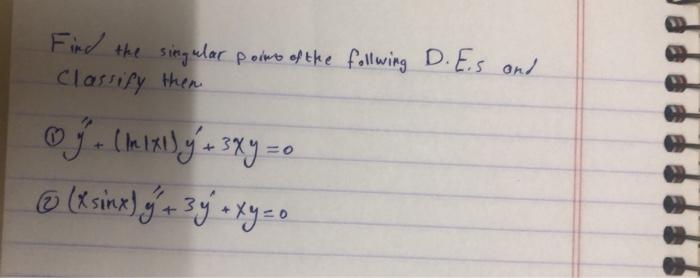 Find the singular points of the follwing D.E.s and
Classify them
① y'' + (ln|x|) y' + 3xy = 0
② (x sinx) y'' + 3y' + xy = 0